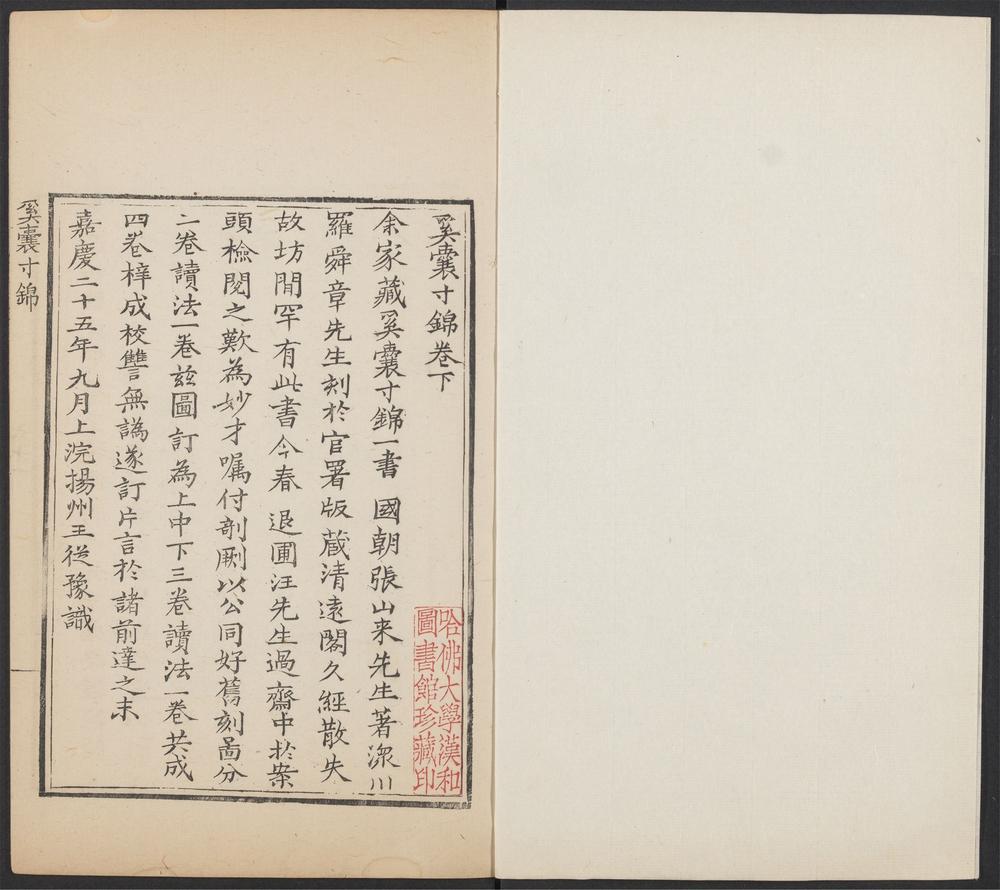 奚囊寸錦卷下
余家藏奚囊寸錦一書 國朝張山来先生著潀川
羅舜章先生刻於官署版蔵清遠閣久經散失
故坊間罕有此書今春 退圃汪先生過齋中於案
頭檢閱之歎為妙才嘱付剞劂以公同好舊刻啚分
二卷讀法一卷兹圖訂為上中下三卷讀法一卷共成
四卷梓成校讐無譌遂訂片言於諸前達之末
嘉慶二十五年九月上浣揚州王從豫識
奚囊寸錦
哈佛大學漢和
圖書館珍藏印